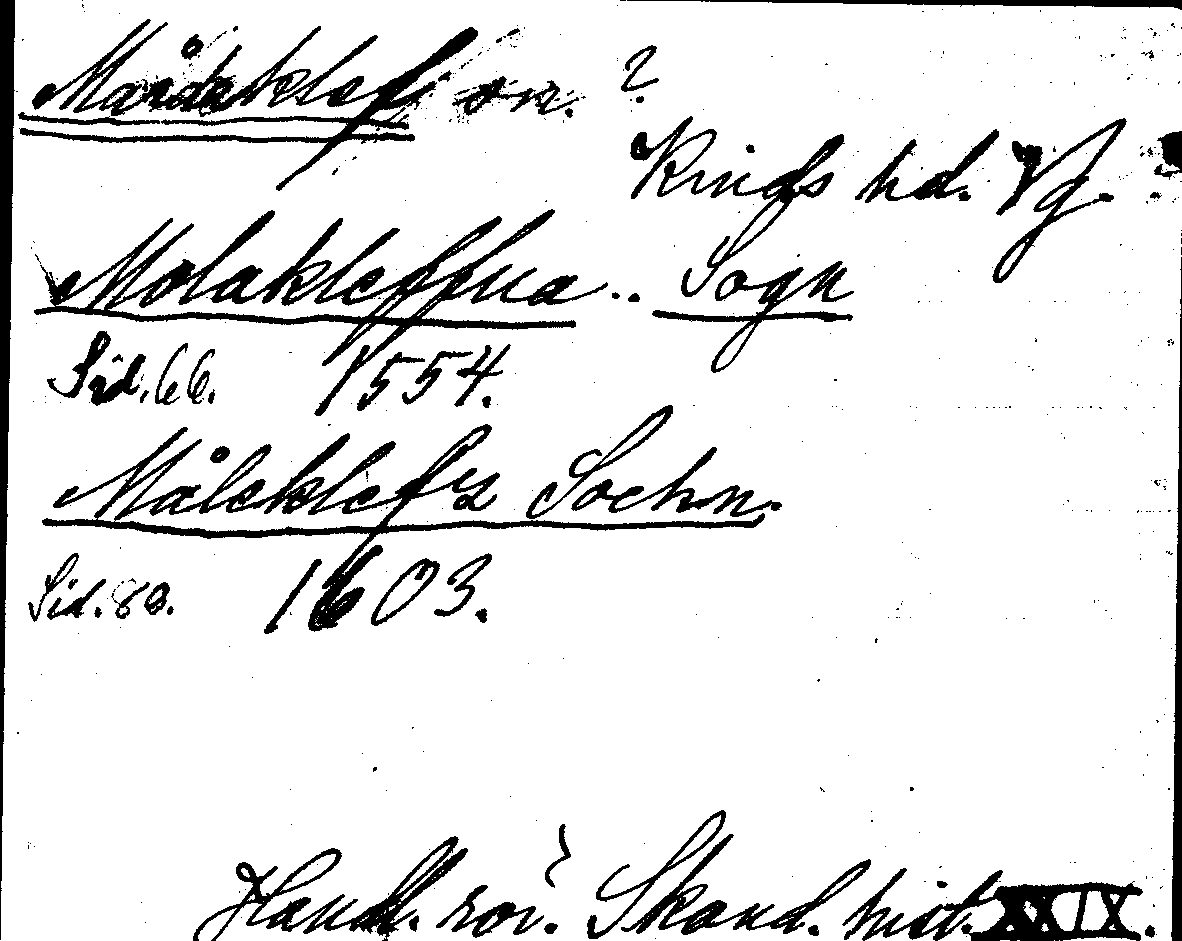 Mårdaklef sn. ?
Kinds hd. Vg. ?
Molakleffua .. Sogn
Sid. 66. 1554.
Måleklefz Sochn.
Sid. 80. 1603.
Handl. rör. Skand. hist. XXIX.